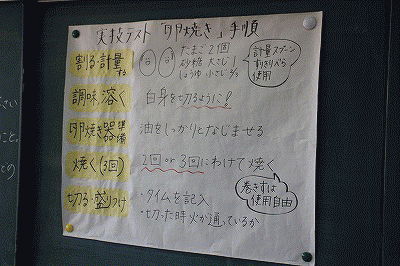 実技テスト「卵焼き」手順
割る・計量する
たまご2個
砂糖 大さじ1
しょうゆ 小さじ2/3
計量スプーン
すりきりべら
使用
調味 溶く
白身を切るように!
卵焼き器準備
油をしっかりとなじませる
焼く(3回)
2回 or 3回にわけて焼く
切る・盛りつけ
・タイムを記入
・切った時火が通っているか
巻きすは
使用自由